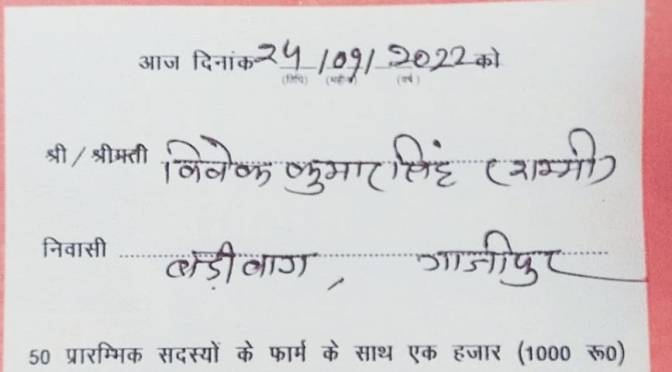 आज दिनांक 24/09/2022 को
(तिथि) (महीना) (वर्ष)
श्री / श्रीमती विवेक कुमार सिंह (शम्मी)
निवासी बड़ीबाग, गाजीपुर
50 प्रारम्भिक सदस्यों के फार्म के साथ एक हजार (1000 रू0)